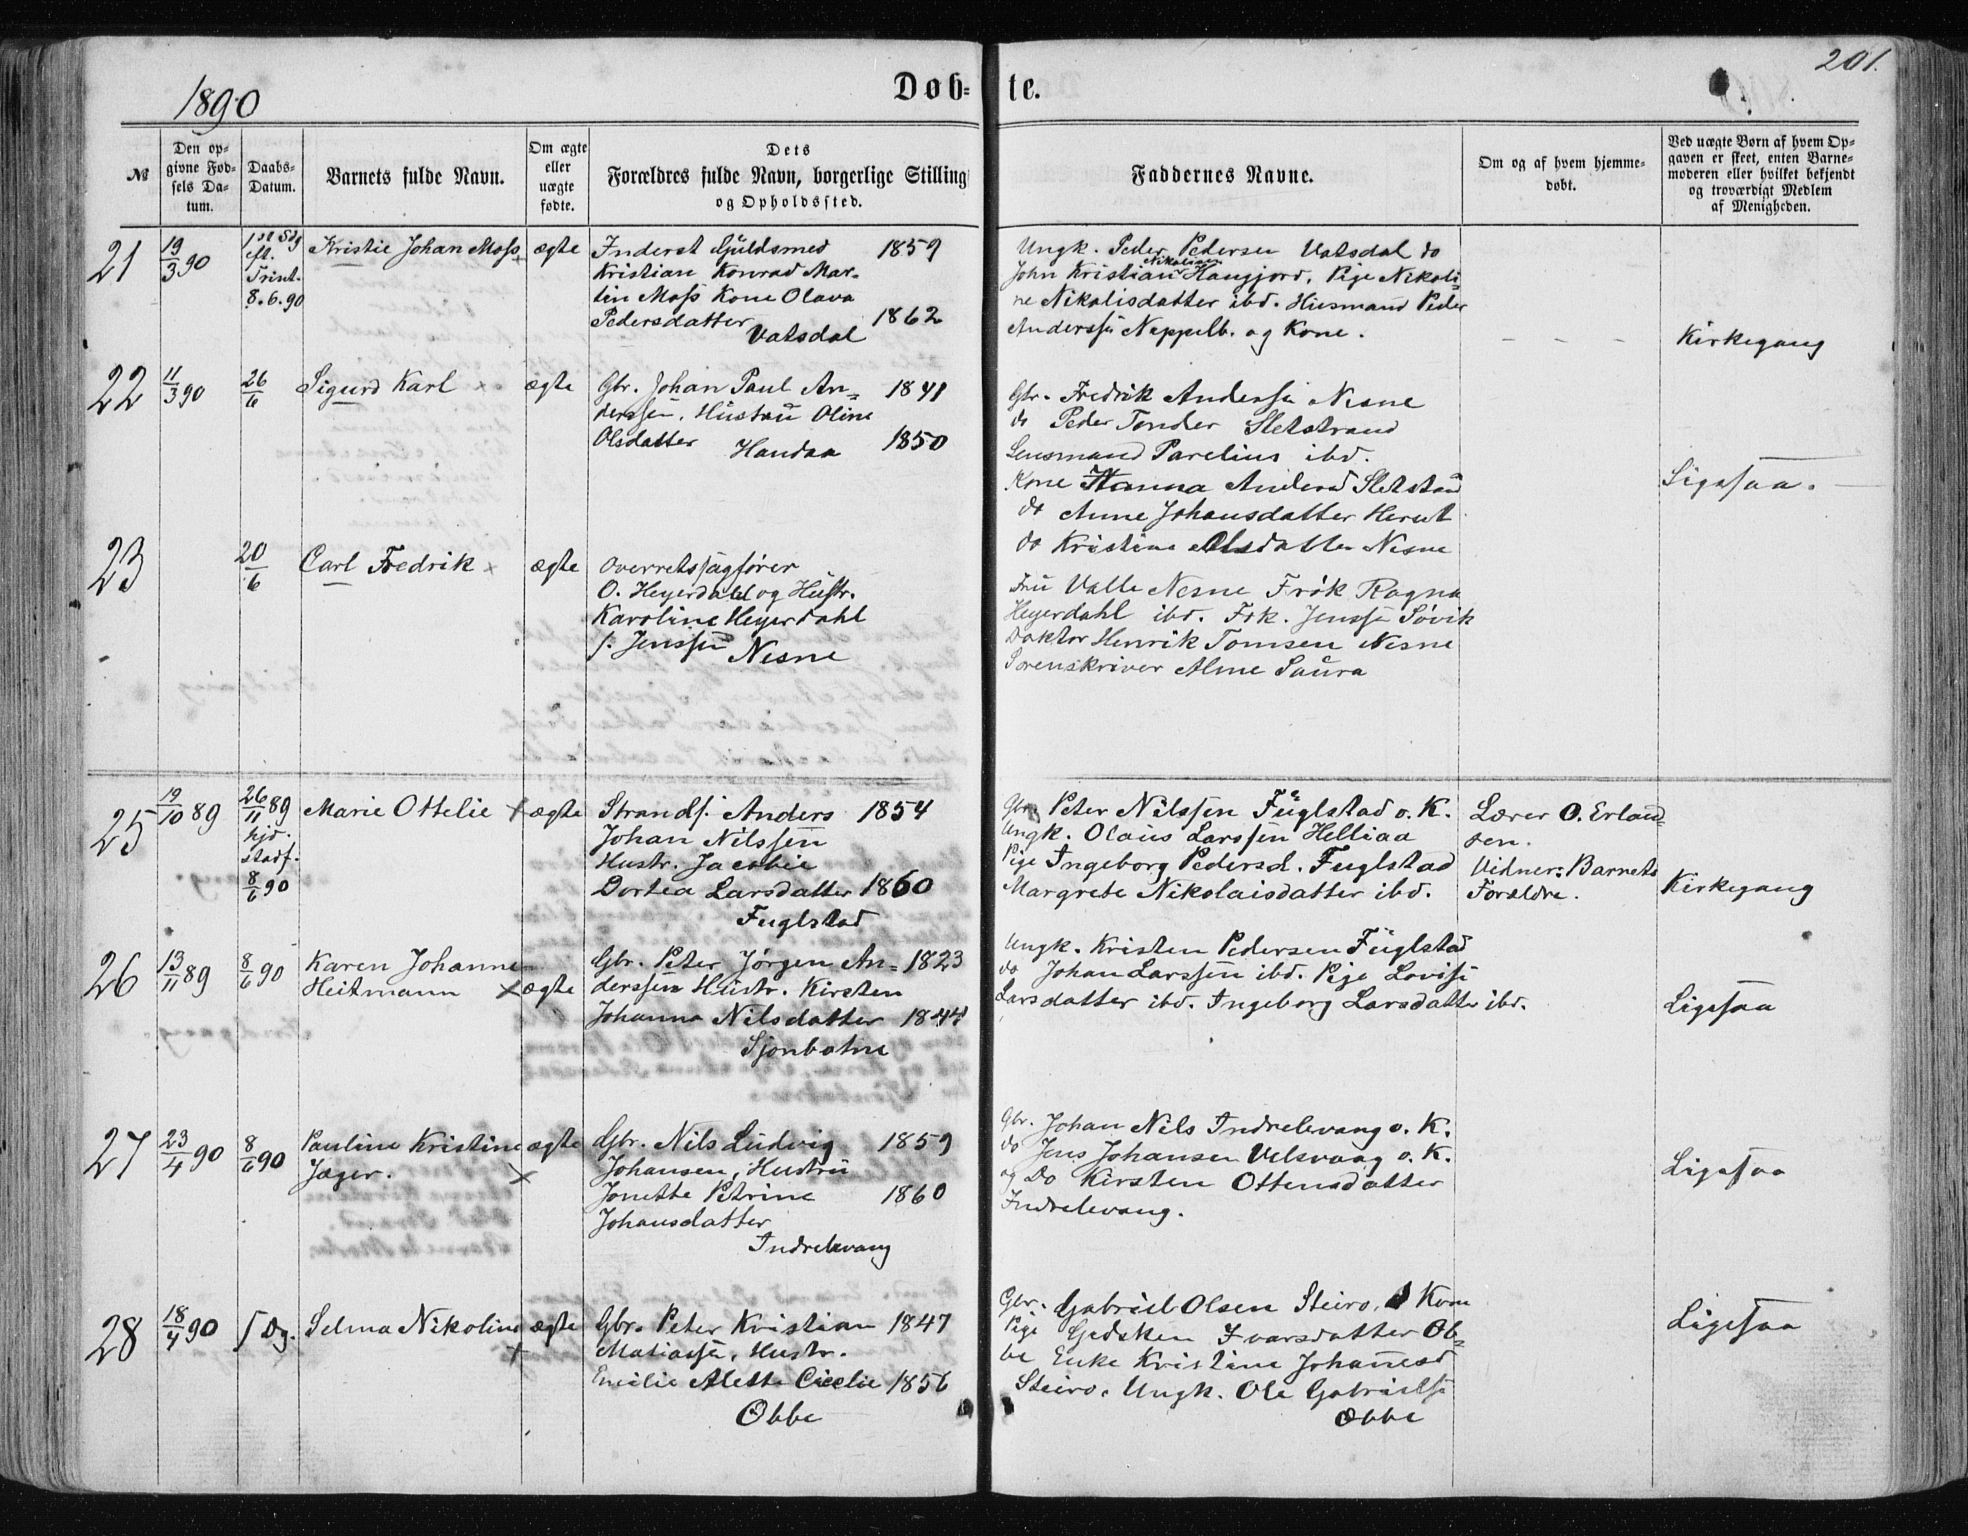 201.
1890
Døb-
te.
№
Den op-
givne Fød-
sels Da-
tum.
Daabs-
Datum.
Barnets fulde Navn.
Om ægte
eller
uægte
fødte.
Dets
Forældres fulde Navn, borgerlige Stilling
og Opholdssted.
Faddernes Navne.
Om og af hvem hjemme-
døbt.
Ved uægte Børn af hvem Op-
gaven er skeet, enten Barne-
moderen eller hvilket bekjendt
og troværdigt Medlem
af Menigheden.
21
19/3 90
1st Sdg
eft.
Trint.
8.6.90
Kristie Johan Moss
ægte
Inderst Guldsmed 1859
Kristian Konrad Mar-
tin Moss Kone Olava
Pedersdatter 1862
Vatsdal
Ungk. Peder Pedersen Vatsdal do
Nikolisen
John Kristian Haugjord, Pige Nikoli=
ne Nikolisdatter ibd. Husmand Peder
Anderssen Neppelb. og Kone.
- - -
Kirkegang
22
11/3 90
26/6
Sigurd Karl
ægte
Gbr. Johan Paul An= 1841
derssen, Hustru Oline
Olsdatter 1850
Handaa
Gbr. Fredrik Anderssen Nesne
do Peder Tonder Sletstrand
Lensmand Parelius ibd.
Kone Hanna Andersd Sletstrand
do Anne Johansdatter Herset
do Kristine Olsdatter Nesne
Ligesaa.
23
20/6
Carl Fredrik
ægte
Overretssagfører
O. Heyerdahl og Hustr.
Karoline Heyerdahl
f. Jenssen Nesne
Fru Valle Nesne Frøk Ragna
Heyerdahl ibd. Frk. Jenssen Søvik
Doktor Henrik Tomsen Nesne
Sorenskriver Alme Saura
25
19/10 89
26/11 89
hjd.
stadf.
8/6 90
Marie Ottelie ×
ægte
Strands. Anders 1854
Johan Nilssen
Hustr. Jacobie
Dortea Larsdatter 1860
Fuglstad
Gbr. Peter Nilssen Fuglstad o. K.
Ungk. Olaus Larssen Helliaa
Pige Ingeborg Pedersd. Fuglstad
Margrete Nikolaisdatter ibd.
Lærer O. Erland=
sen.
Vidner: Barnets
Forældre.
Kirkegang
26
13/11 89
8/6 90
Karen Johanne
Heitmann ×
ægte
Gbr. Peter Jørgen An= 1823
derssen Hustr. Kirsten
Johanna Nilsdatter 1844
Sjonbotne
Ungk. Kristen Pedersen Fuglstad
do Johan Larssen ibd. Pige Lovise
Larsdatter ibd. Ingeborg Larsdatter ibd.
Ligesaa
27
23/4 90
8/6 90
Pauline Kristine
Jæger. ×
ægte
Gbr. Nils Ludvig 1859
Johansen, Hustru
Jonette Petrine 1860
Johansdatter
Indrelevang
Gbr. Johan Nils Indrelevang o. K.
do Jens Johansen Velsvaag o. K.
og Do Kirsten Ottensdatter
Indrelevang.
Ligesaa
28
18/4 90
s Dg.
Selma Nikoline ×
ægte
Gbr. Peter Kristian 1847
Matiassen, Hustr.
Emilie Alette Cicelie 1856
Obbe
Gbr. Gabriel Olsen Steiro, Kone
Pige Gedsken Ivarsdatter Ob=
be Enke Kristine Johannesd
Steiro, Ungk. Ole Gabrielsen
Obbe
Ligesaa